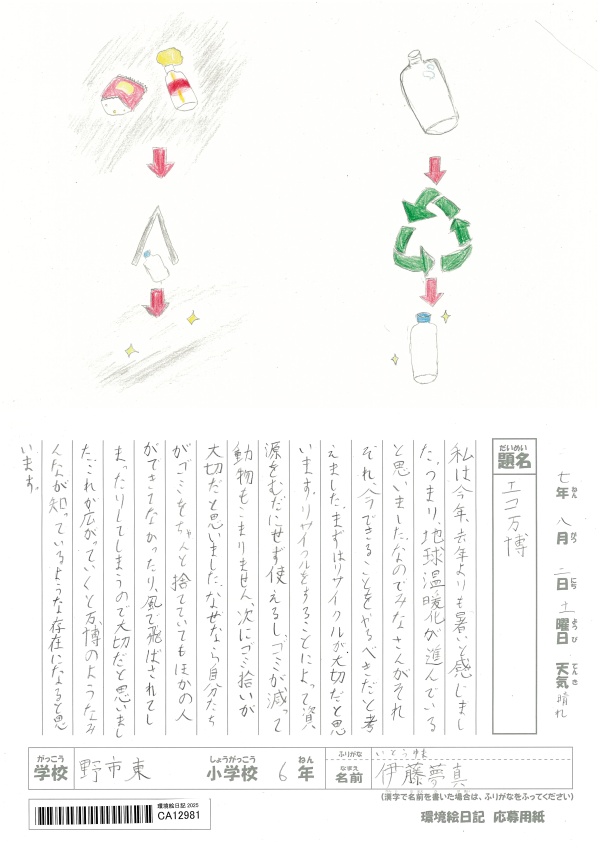 七年 八月 二日 土曜日 天気 晴れ
ねん がつ にち ようび てんき
だいめい
題名
エコ万博
私は今年、去年よりも暑いと感じまし
た。つまり、地球温暖化が進んでいる
と思いました。なのでみなさんがそれ
ぞれ、今できることをやるべきだと考
えました。まずはリサイクルが大切だと思
います。リサイクルをすることによって資
源をむだにせず使えるし、ゴミが減って
動物もこまりません。次にゴミ拾いが
大切だと思いました。なぜなら自分たち
がゴミをちゃんと捨てていてもほかの人
ができてなかったり、風で飛ばされてし
まったりしてしまうので大切だと思いまし
た。これが広がっていくと万博のようなみ
んなが知っているような存在になると思
います。
がっこう
学校
野市東
しょうがっこう
小学校
6
ねん
年
ふりがな
いとうゆま
なまえ
名前
伊藤夢真
(漢字で名前を書いた場合は、ふりがなをふってください)
環境絵日記2025
CA12981
環境絵日記 応募用紙